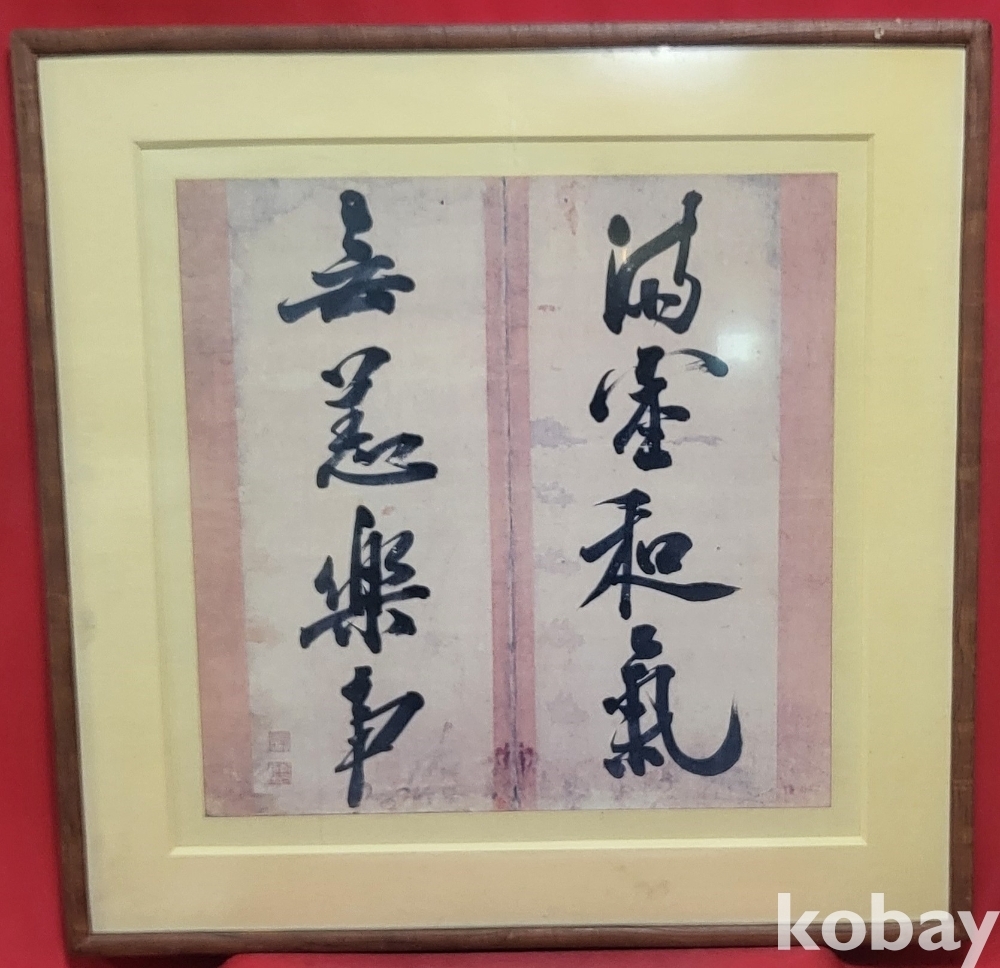 滿堂和氣
無恙樂事
kobay